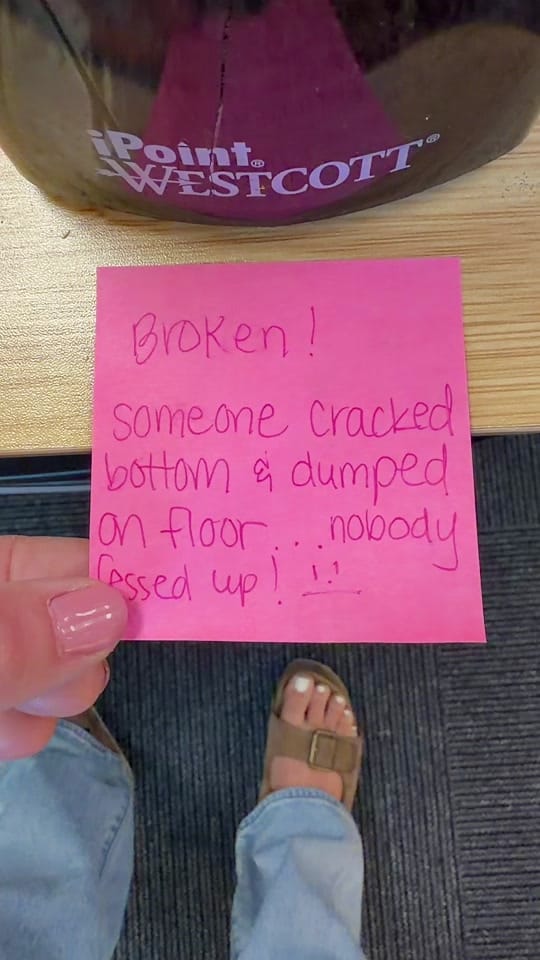 iPoint®
WESTCOTT®
Broken!
someone cracked
bottom & dumped
on floor...nobody
fessed up!